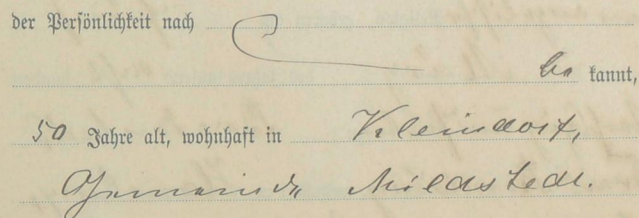 der Persönlichkeit nach
be kannt,
50 Jahre alt, wohnhaft in Kleindorf,
Gemeinde Mildstedt.